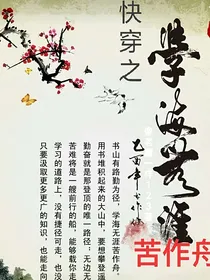 快穿之
學海無涯
苦作舟
书山有路勤为径，学海无涯苦作舟
用书堆积起来的大山中，要想攀登
勤奋就是那登顶的唯一路径；无边无
苦难将是一艘前行的船，能够载你走
学习的道路上，没有捷径可走，也没
只要汲取更多更广的知识，也能走向